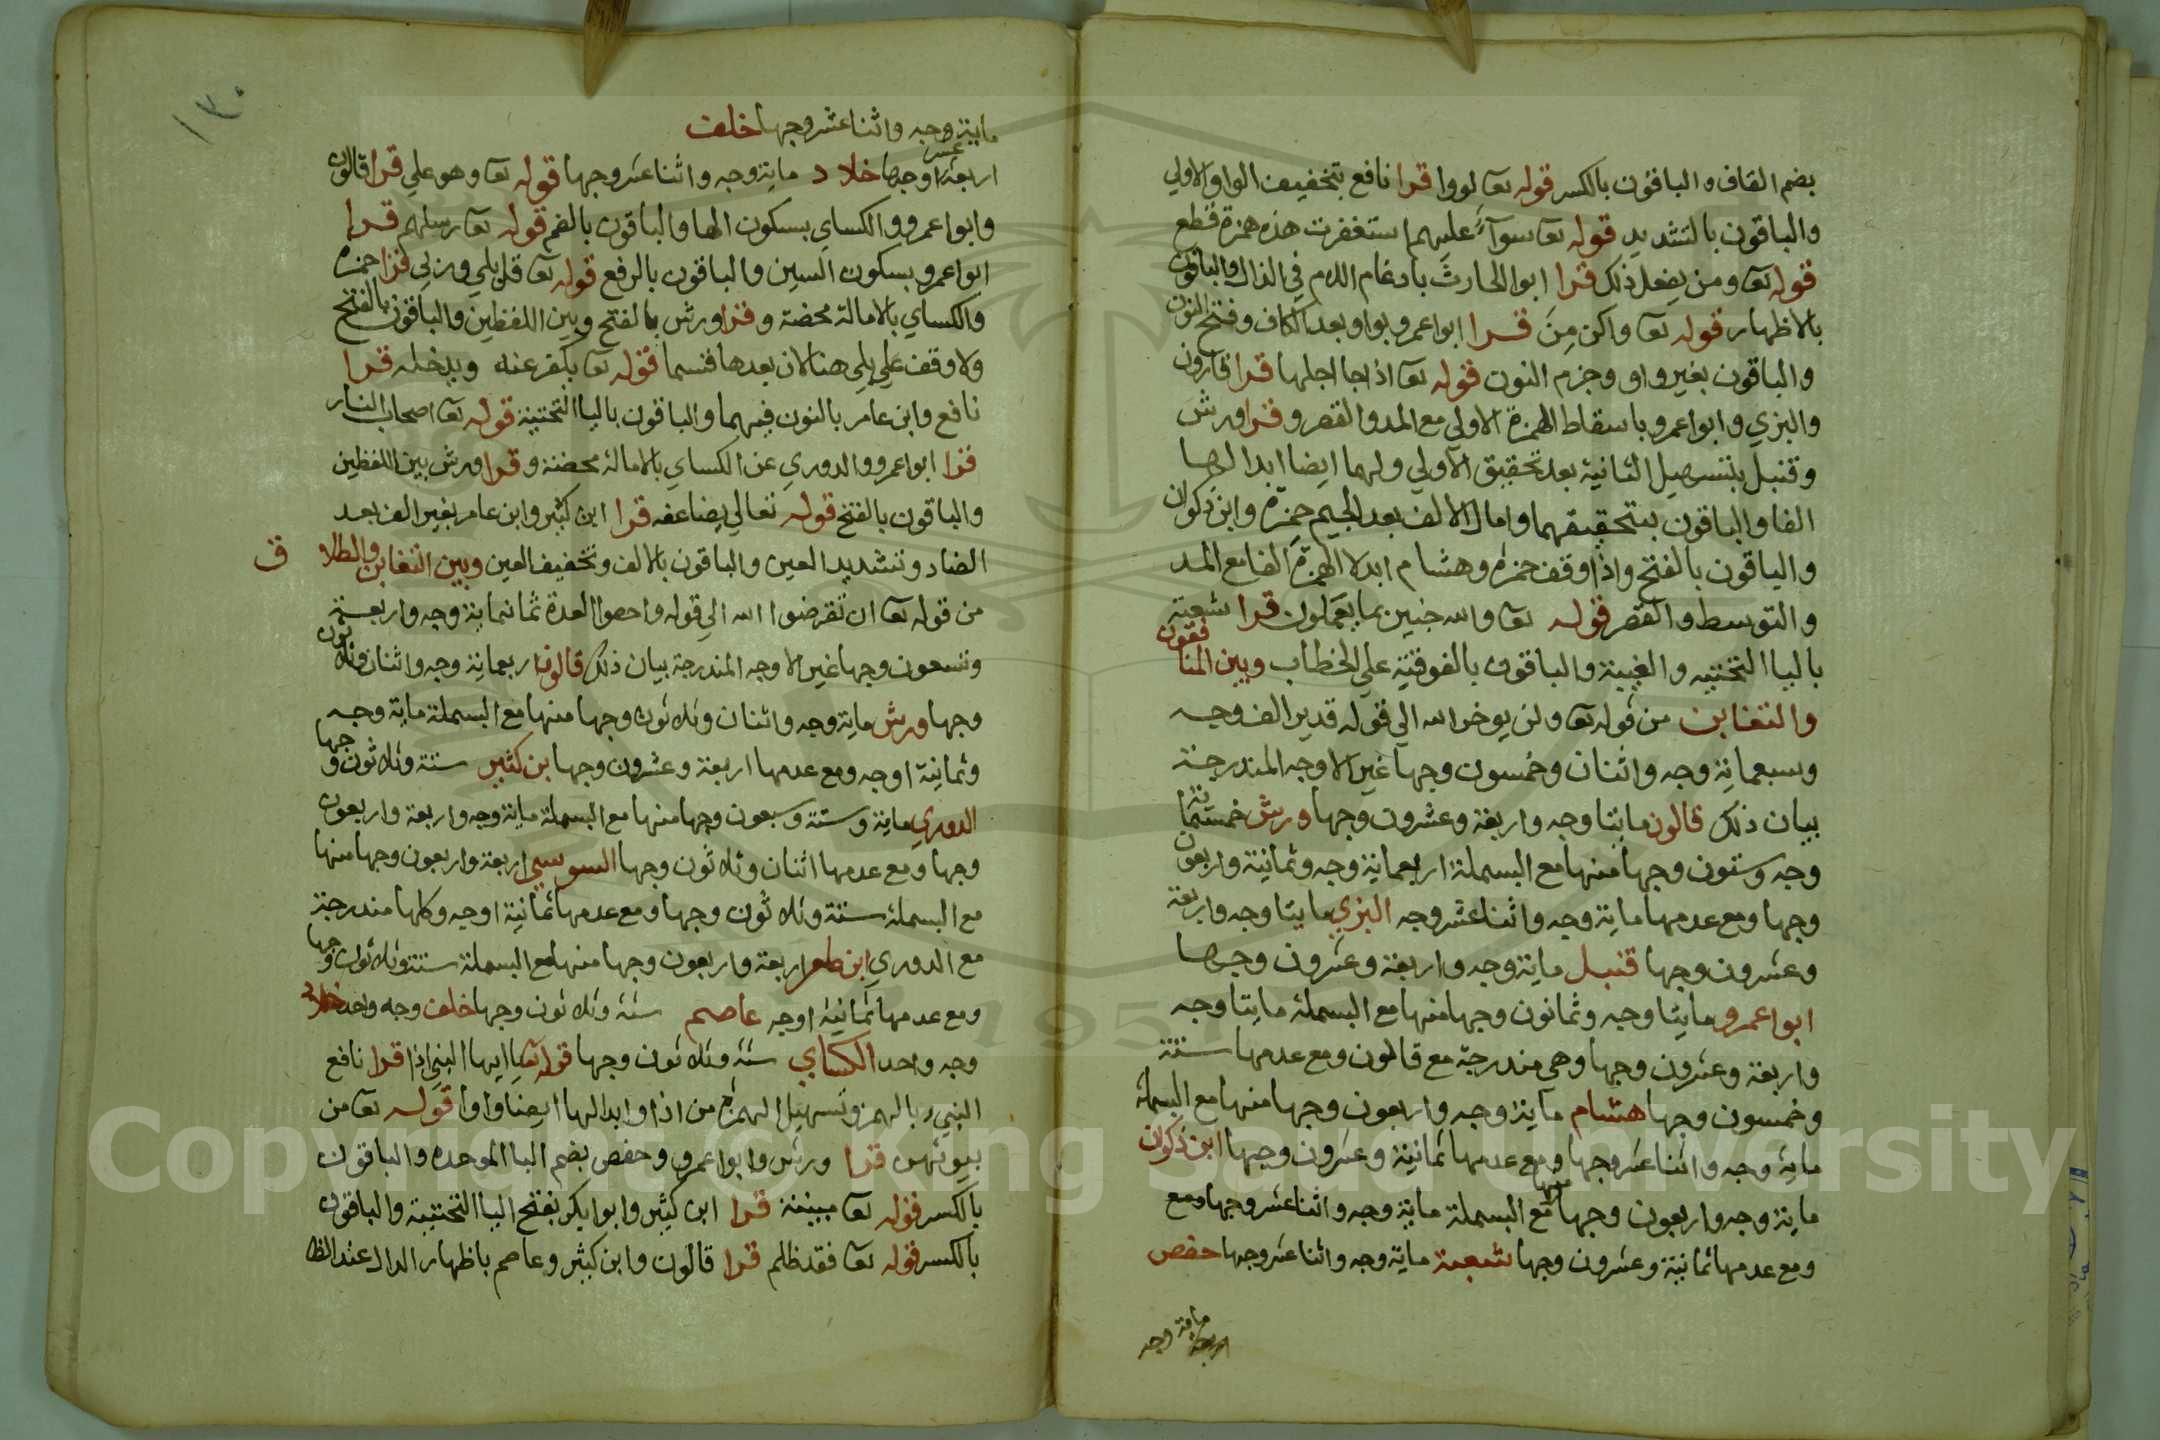 بضم القاف والباقون بالكسر قوله تعا لووا قرا نافع بتخفيف الواو الاولي
والباقون بالتشديد قوله تعا سوآء عليهم استغفرت هذه همزة قطع
قوله تعا ومن يفعل ذلك قرا ابو الحارث بادغام اللام في الذال والباقون
بالاظهار قوله تعا واكن من قرا ابوا عمرو بواو بعد الكاف وفتح النون
والباقون بغير واو وجزم النون قوله تعا اذا جا اجلها قرا قالون
والبزي وابوا عمرو باسقاط الهمزة الاولي مع المد والقصر وقرا ورش
وقنبل بتسهيل الثانية بعد تحقيق الاولي ولهما ايضا ابدالها
الفا والباقون بتحقيقهما وامال الالف بعد الجيم حمزة وابن ذكوان
والباقون بالفتح واذا وقف حمزة وهشام ابدلا الهمزة الفا مع المد
والتوسط والقصر قوله تعا والله خبير بما يعملون قرا شعبة
باليا التحتيه والغيبة والباقون بالفوقية علي الخطاب وبين المنافقون
والتغابن من قوله تعا ولن يوخر الله الي قوله قدير الف وجه
وسبعماية وجه واثنان وخمسون وجها غير الاوجه المندرجة
بيان ذلك قالون مايتا وجه واربعة وعشرون وجها ورش خمسماية
وجه وستون وجها منها مع البسملة اربعماية وجه وثمانية واربعون
وجها ومع عدمها ماية وجه واثنا عشر وجه البزي مايتا وجه واربعة
وعشرون وجها قنبل ماية وجه واربعة وعشرون وجها
ابوا عمرو مايتا وجه وثمانون وجها منها مع البسملة مايتا وجه
واربعة وعشرون وجها وهي مندرجة مع قالون ومع عدمها ستة
وخمسون وجها هشام ماية وجه واربعون وجها منها مع البسملة
ماية وجه واثنا عشر وجها ومع عدمها ثمانية وعشرون وجها ابن ذكوان
ماية وجه واربعون وجها منها مع البسملة ماية وجه واثنا عشر وجها ومع
ومع عدمها ثمانية وعشرون وجها شعبة ماية وجه واثنا عشر وجها حفص
ماية وجه
١٣٠
ماية وجه واثنا عشر وجها خلف
اربعة عشر وجها خلاد ماية وجه واثنا عشر وجها قوله تعا وهو علي قرا قالون
وابوا عمرو والكساي بسكون الها والباقون بالضم قوله تعا رسلهم قرا
ابوا عمرو بسكون السين والباقون بالرفع قوله تعا قل بلي وربي قرا حمزة
والكساي بالامالة محضة وقرا ورش بالفتح وبين اللفظين والباقون بالفتح
ولا وقف علي بلي هنا لان بعدها قسما قوله تعا يكفر عنه ويدخله قرا
نافع وابن عامر بالنون فيهما والباقون باليا التحتية قوله تعا اصحاب النار
قرا ابوا عمرو والدوري عن الكساي بالامالة محضة وقرا ورش بين اللفظين
والباقون بالفتح قوله تعالي يضاعفه قرا ابن كثير وابن عامر بغير الف بعد
الضاد وتشديد العين والباقون بالالف وتخفيف العين وبين التغابن والطلاق
من قوله تعا ان تقرضوا الله الي قوله واحصوا العدة ثمانماية وجه واربعة
وتسعون وجها غير الاوجه المندرجة بيان ذلك قالون اربعماية وجه واثنان وثلاثون
وجها ورش ماية وجه واثنان وثلاثون وجها منها مع البسملة ماية وجه
وثمانية اوجه ومع عدمها اربعة وعشرون وجها بن كثير ستة وثلاثون وجها
الدوري ماية وستة وسبعون وجها منها مع البسملة ماية وجه واربعة واربعون
وجها ومع عدمها اثنان وثلاثون وجها السوسي اربعة واربعون وجها منها
مع البسملة ستة وثلاثون وجها ومع عدمها ثمانية اوجه وكلها مندرجة
مع الدوري ابن عامر اربعة واربعون وجها منها مع البسملة ستة وثلاثون وجها
ومع عدمها ثمانية اوجه عاصم ستة وثلاثون وجها خلف وجه واحد خلاد
وجه واحد الكساي ستة وثلاثون وجها قوله تعا يا ايها النبي اذا قرا نافع
النبيء بالهمز وتسهيل الهمزة من اذا وابدالها ايضا واوا قوله تعا من
بيوتهن قرا ورش وابوا عمرو وحفص بضم البا الموحده والباقون
بالكسر قوله تعا مبينة قرا ابن كثير وابوا بكر بفتح اليا التحتية والباقون
بالكسر قوله تعا فقد ظلم قرا قالون وابن كثير وعاصم باظهار الدال عند الظا
Copyright © King Saud University
1957